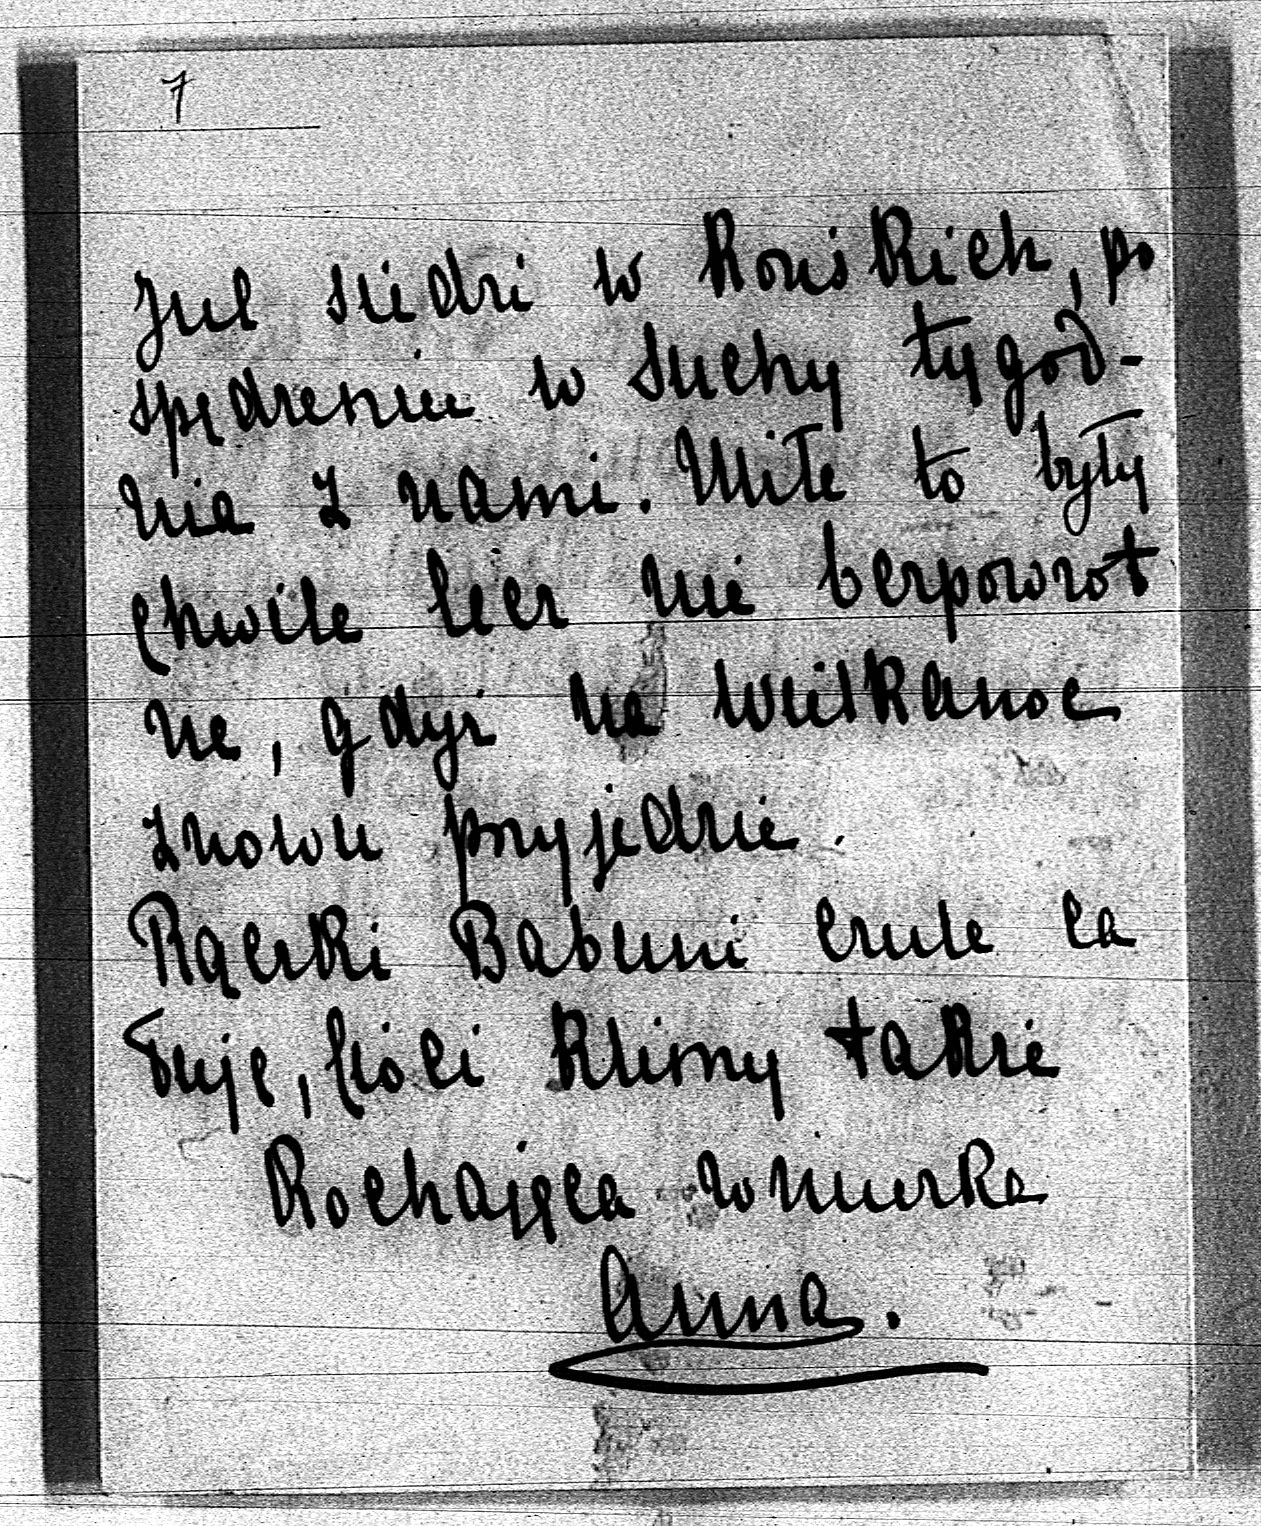 7
Jul siedzi w Końskich, po
spędzeniu w Suchy tygod-
nia z nami. Miłe to były
chwile lecz nie bezpowrot
ne, gdyż na Wielkanoc
znowu przyjedzie.
Rączki Babuni czule ca
łuję, cioci Klimy także
Kochająca wnuczka
Anna.